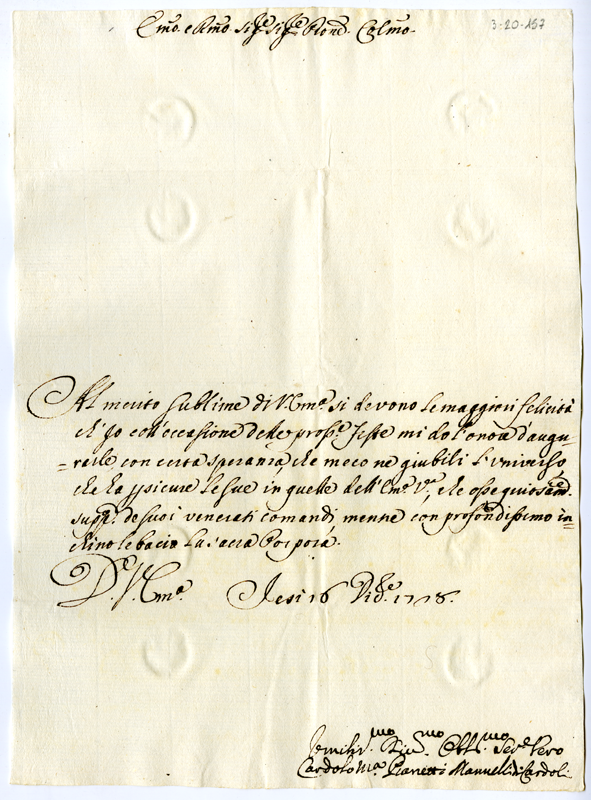 Em̃o. e Rm̃o. Sig.re Sig.re Pron̄e. Col.mo
3-20-157
Al merito sublime di V. Em.a si devono le maggiori felicità
ch'Jo coll'occasione delle pross.e Feste mi dò l'onore d'augu-
=rarle con certa speranza, che meco ne giubili l'universo,
che hà le sue in quelle dell'Em.a V.a, che ossequiosam.e
supp.o de suoi venerati comandi, mentre con profondissimo in=
chino le bacio la Sacra Porpora.
D. V. Em.a Jesi 16 Xbre 1718.
Vmiliss.mo Obbl.mo Ser.e Vero
Cardolo M.a Pianetti Mannelli Cardoli